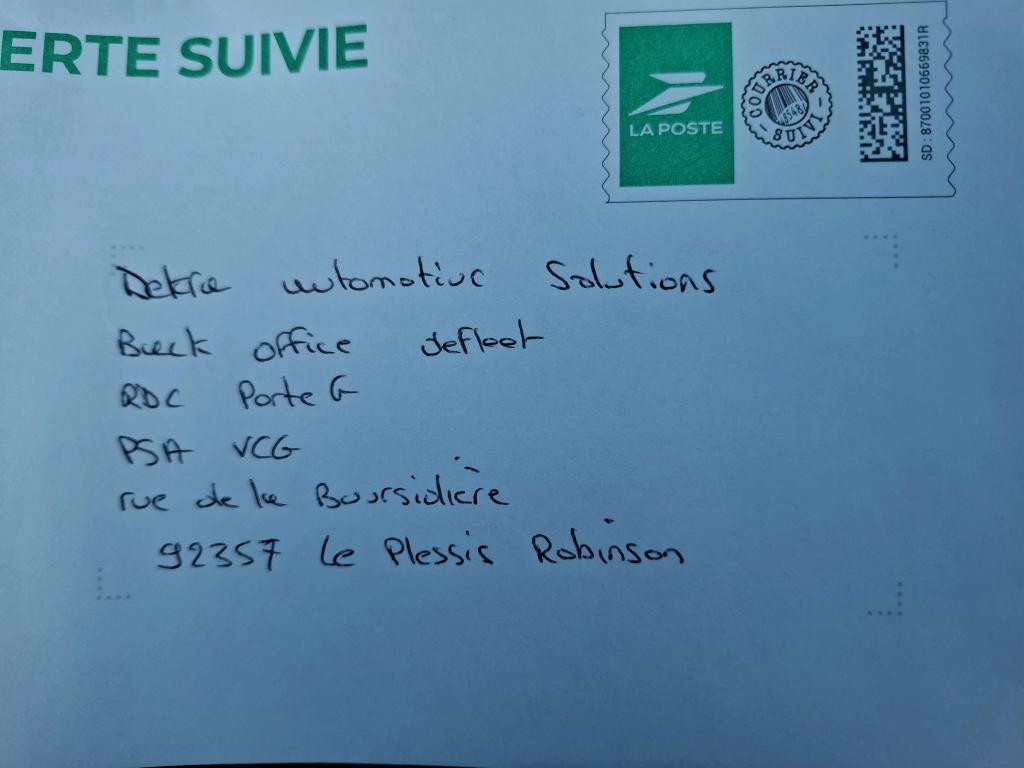 ERTE SUIVIE
LA POSTE
COURRIER
SUIVI
SD : 87001010669831R
Dekra automotive Solutions
Back office defleet
RDC Porte G
PSA VCG
rue de la Boursidière
92357 Le Plessis Robinson